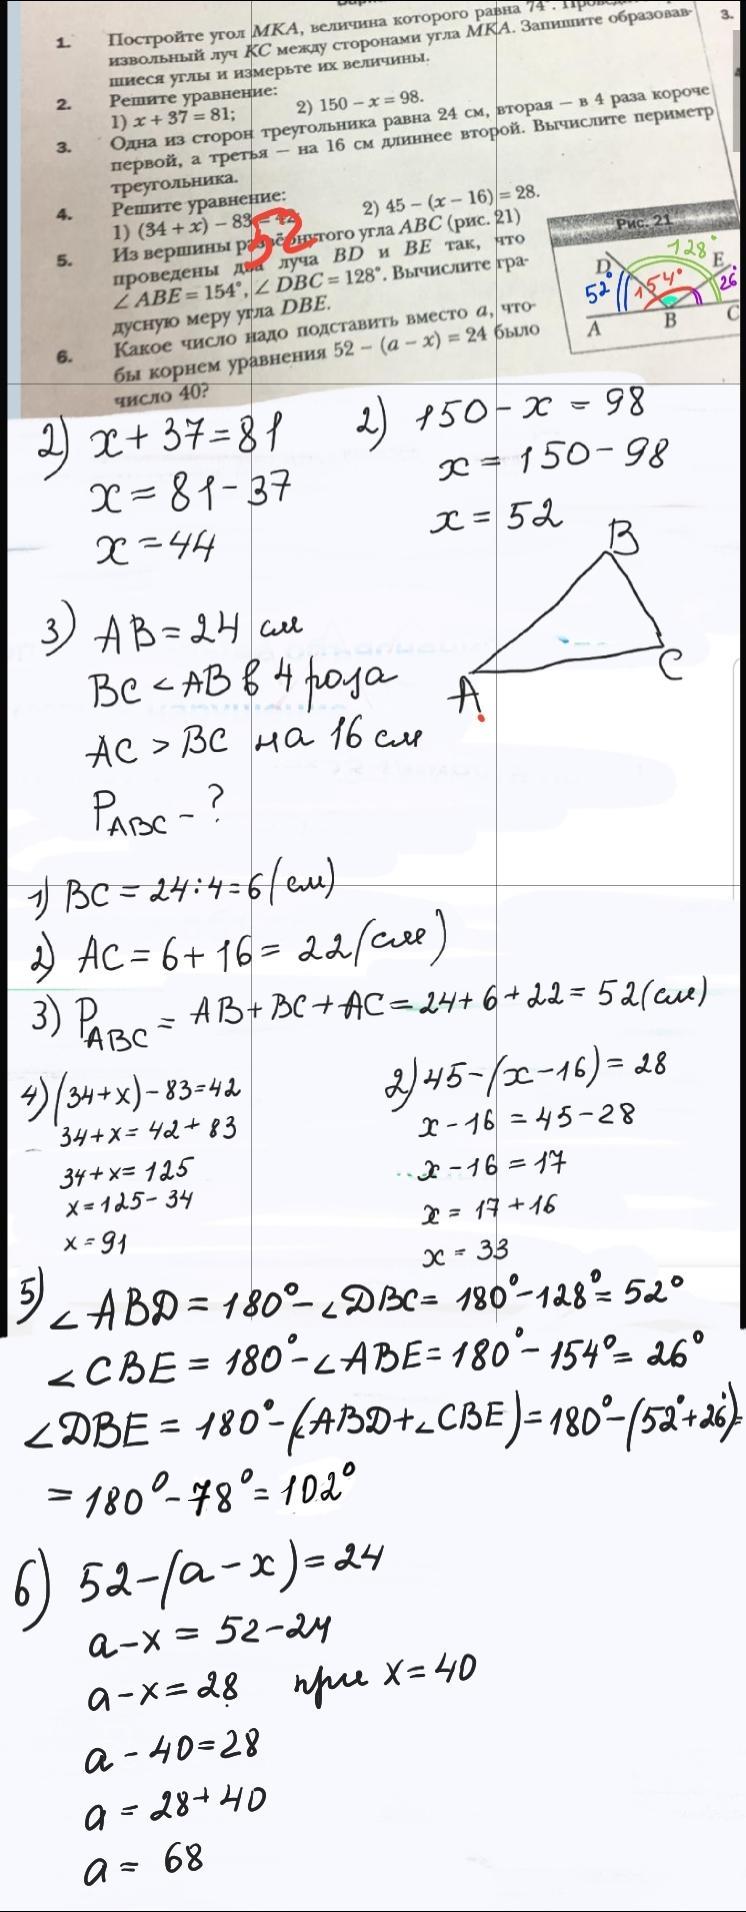 1. Постройте угол MKA, величина которого равна 74°.
извольный луч KC между сторонами угла MKA. Запишите образовав-
шиеся углы и измерьте их величины.
3.
2. Решите уравнение:
1) x + 37 = 81; 2) 150 − x = 98.
3. Одна из сторон треугольника равна 24 см, вторая — в 4 раза короче
первой, а третья — на 16 см длиннее второй. Вычислите периметр
треугольника.
4. Решите уравнение:
1) (34 + x) − 83 = 42 2) 45 − (x − 16) = 28.
52
5. Из вершины развёрнутого угла ABC (рис. 21)
проведены два луча BD и BE так, что
∠ ABE = 154°, ∠ DBC = 128°. Вычислите гра-
дусную меру угла DBE.
6. Какое число надо подставить вместо a, что-
бы корнем уравнения 52 − (a − x) = 24 было
число 40?
Рис. 21
128°
D E
52° 154° 26°
A B C
2) x + 37 = 81
x = 81 - 37
x = 44
2) 150 - x = 98
x = 150 - 98
x = 52
3) AB = 24 см
BC < AB в 4 роза
AC > BC на 16 см
P ABC - ?
B
A
C
1) BC = 24 : 4 = 6 (см)
2) AC = 6 + 16 = 22 (см)
3) P ABC = AB + BC + AC = 24 + 6 + 22 = 52 (см)
4) (34 + x) - 83 = 42
34 + x = 42 + 83
34 + x = 125
x = 125 - 34
x = 91
2) 45 - (x - 16) = 28
x - 16 = 45 - 28
x - 16 = 17
x = 17 + 16
x = 33
5) ∠ABD = 180° - ∠DBC = 180° - 128° = 52°
∠CBE = 180° - ∠ABE = 180° - 154° = 26°
∠DBE = 180° - (ABD + ∠CBE) = 180° - (52° + 26°) =
= 180° - 78° = 102°
6) 52 - (a - x) = 24
a - x = 52 - 24
a - x = 28 при x = 40
a - 40 = 28
a = 28 + 40
a = 68